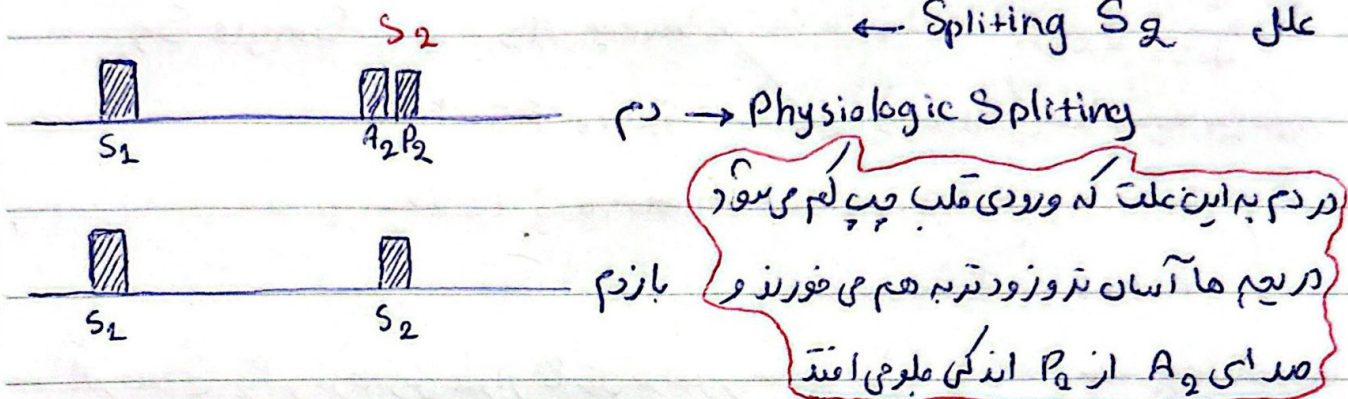 علل Spliting S2 ←
S2
دم → Physiologic Spliting
S1 A2 P2
در دم به این علت که ورودی قلب چپ کم می شود
دریچه ها آسان تر و زودتر به هم می خورند و
صدای A2 از P2 اندکی جلو می افتد
بازدم
S1 S2